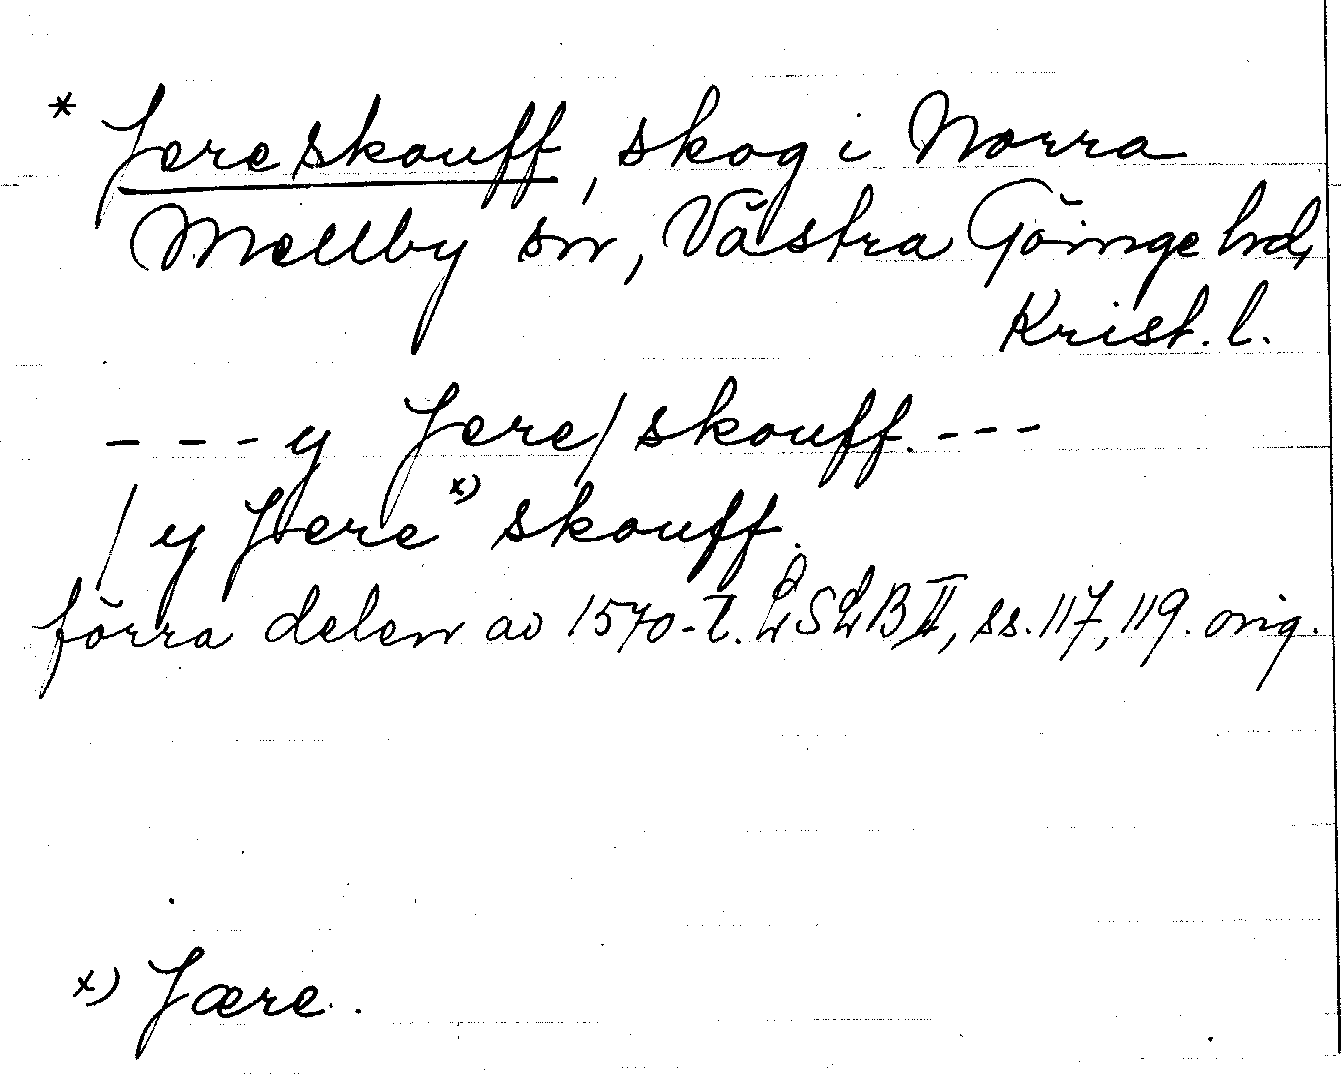 * Jereskouff, skog i Norra
Mellby sn, Västra Göinge hd,
Krist. l.
---y Jere/skouff.---
/ y Jere x) skouff.
förra delen av 1570-t. LSLB II, ss. 117, 119. orig.
x) Jære.